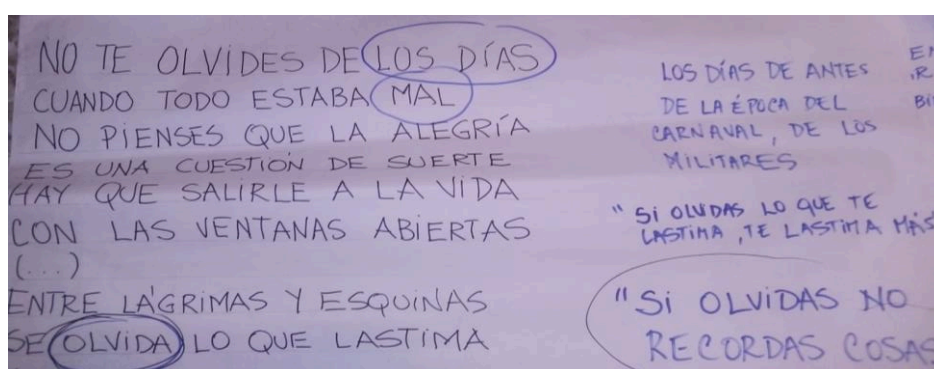 NO TE OLVIDES DE LOS DÍAS
CUANDO TODO ESTABA MAL
NO PIENSES QUE LA ALEGRÍA
ES UNA CUESTIÓN DE SUERTE
HAY QUE SALIRLE A LA VIDA
CON LAS VENTANAS ABIERTAS
(...)
ENTRE LÁGRIMAS Y ESQUINAS
SE OLVIDA LO QUE LASTIMA
LOS DÍAS DE ANTES
DE LA ÉPOCA DEL
CARNAVAL, DE LOS
MILITARES
"SI OLVIDAS LO QUE TE
LASTIMA, TE LASTIMA MÁS
"SI OLVIDAS NO
RECORDAS COSAS